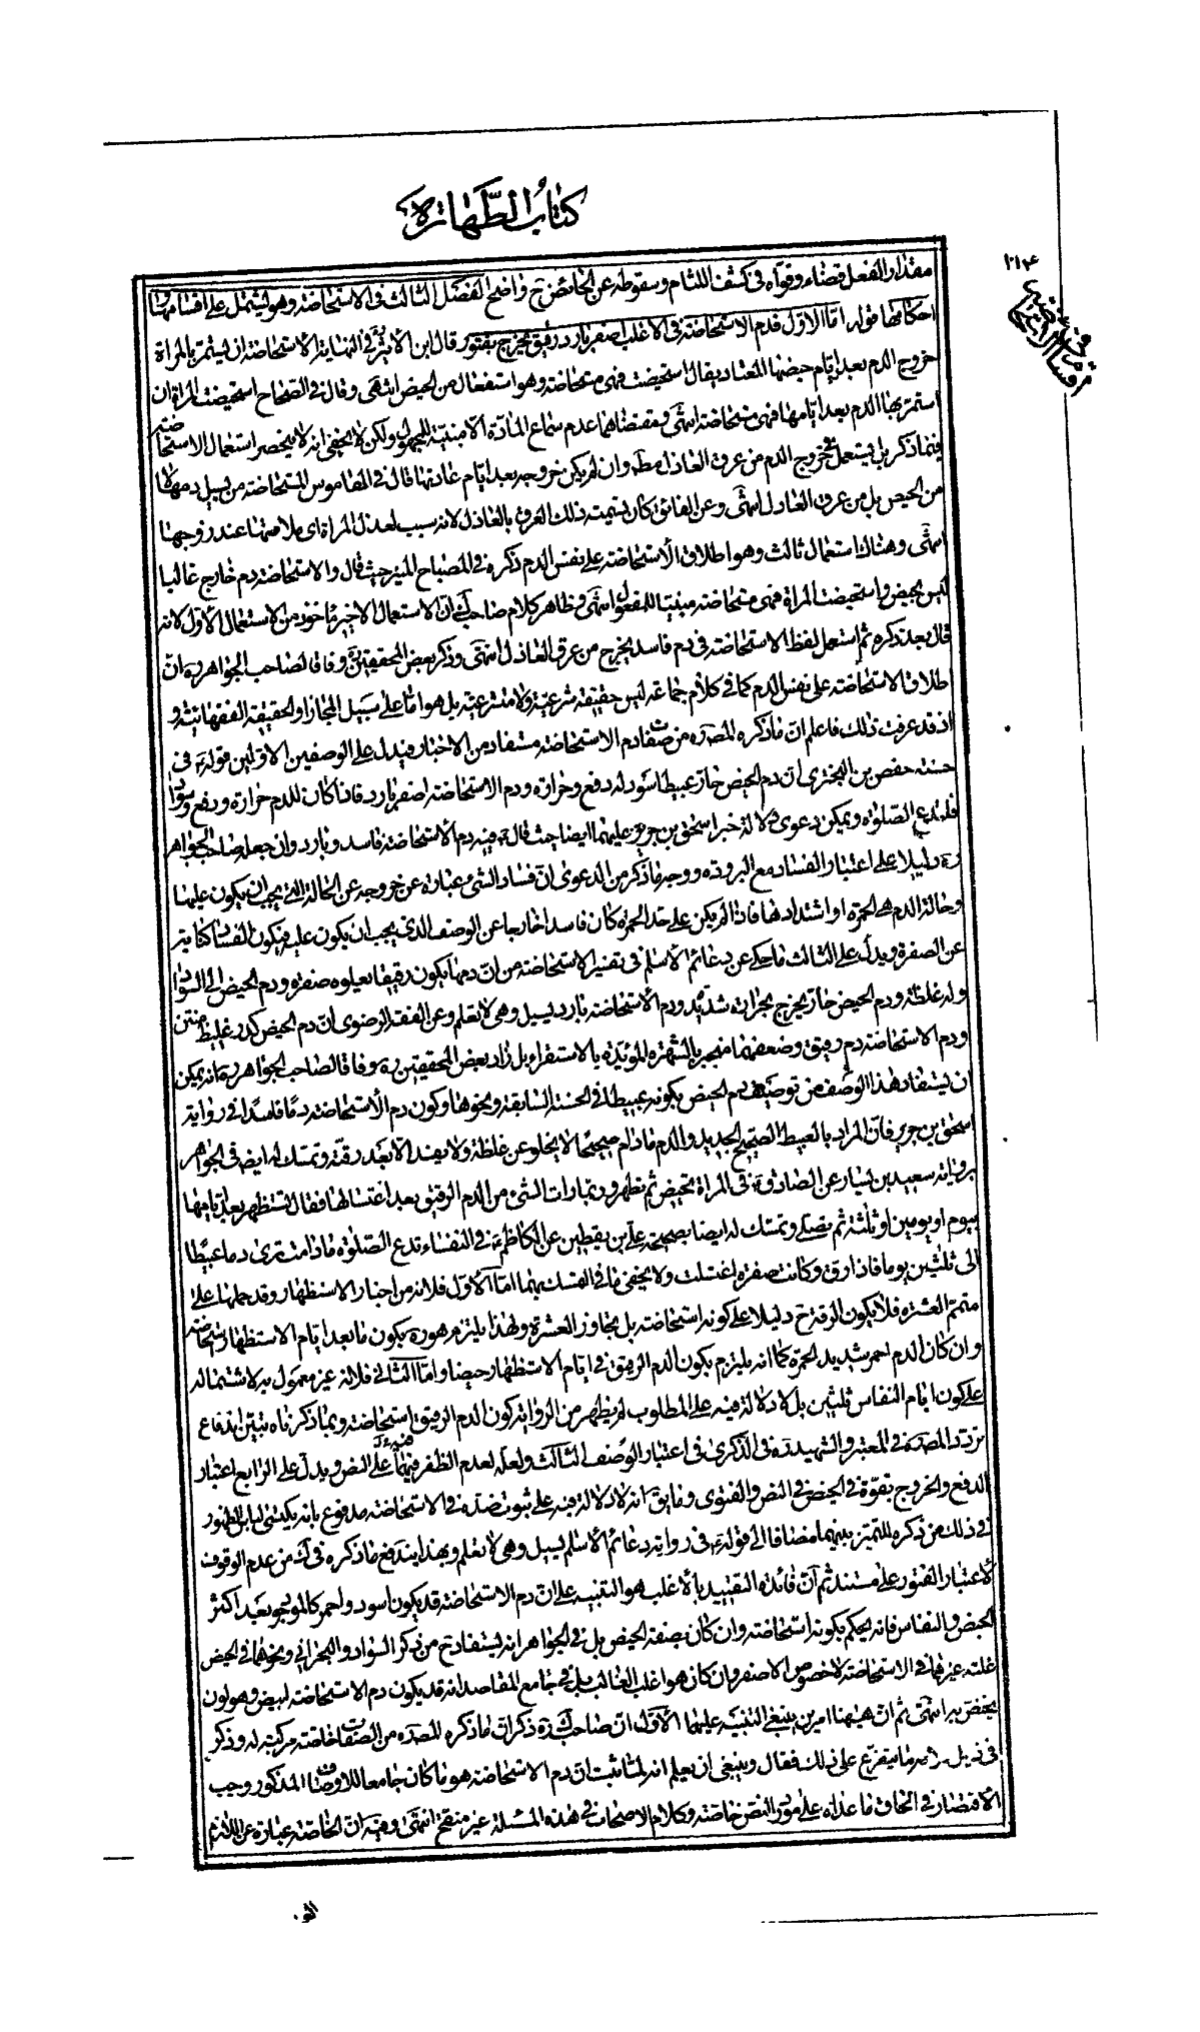 كتاب الطهارة
٢١٤
في تعريف
أقسام الاستحاضة
مقدار الفعل قضاء وقواه في كشف اللثام وسقوطه عن الحائض ح واضح الفصل الثالث في الاستحاضة وهو يشتمل على اقسامها و
احكامها قوله اما الاول فدم الاستحاضة في الاغلب اصفر بارد رقيق يخرج بفتور قال ابن الأثير في النهاية الاستحاضة ان يستمر بالمرأة
خروج الدم بعد ايام حيضها المعتاد يقال استحيضت فهي مستحاضة وهو استفعال من الحيض انتهى وقال في الصحاح استحيضت المرأة ان
استمر بها الدم بعد ايامها فهي مستحاضة انتهى ومقتضاهما عدم سماع المادة الا مبنية للمجهول ولكن لا يخفى انه لا ينحصر استعمال الاستحاضة
فيما ذكر بل يستعمل في خروج الدم من عرق العاذل مطلقا وان لم يكن خروجه بعد ايام عادتها قال في القاموس المستحاضة من يسيل دمها لا
من الحيض بل من عرق العاذل انتهى وعن الفائق كان تسميته ذلك العرق بالعاذل لانه سبب لعذل المرأة اي ملامتها عند زوجها
انتهى وهناك استعمال ثالث وهو اطلاق الاستحاضة على نفس الدم ذكره في المصباح المنير حيث قال والاستحاضة دم خارج غالبا
ليس بحيض واستحيضت المرأة فهي مستحاضة مبنيا للمفعول انتهى وظاهر كلام صاحب ك ان الاستعمال الاخير مأخوذ من الاستعمال الأول لانه
قال بعد ذكره ثم استعمل لفظ الاستحاضة في دم فاسد يخرج من عرق العاذل انتهى وذكر بعض المحققين ره وفاقا لصاحب الجواهر ره ان
اطلاق الاستحاضة على نفس الدم كما في كلام جماعة ليس حقيقة شرعية ولا متشرعية بل هو اما على سبيل المجاز او الحقيقة الفقهائية و
اذ قد عرفت ذلك فاعلم ان ما ذكره المصنف ره من صفات دم الاستحاضة مستفاد من الاخبار فيدل على الوصفين الاولين قوله ع في
حسنة حفص بن البختري ان دم الحيض حار عبيط اسود له دفع وحرارة ودم الاستحاضة اصفر بارد فاذا كان للدم حرارة ودفع وسواد
فلتدع الصلوة ويمكن دعوى دلالة خبر اسحق بن جرير عليهما ايضا حيث قال ع فيه دم الاستحاضة فاسد وبارد وان جعله صاحب الجواهر
ره دليلا على اعتبار الفساد مع البرودة ووجه ما ذكر من الدعوى ان فساد الشئ عبارة عن خروجه عن الحالة التي يجب ان يكون عليها
وحالة الدم هي الحمرة او اشتدادها فاذا لم يكن على حد الحمرة كان فاسدا خارجا عن الوصف الذي يجب ان يكون عليه فيكون الفساد كناية
عن الصفرة ويدل على الثالث ما حكي عن دعائم الأسلام في تفسير الاستحاضة من ان دمها يكون رقيقا يعلوه صفرة ودم الحيض الى السواد
وله غلظة ودم الحيض حار يخرج بحرارة شديدة ودم الاستحاضة بارد يسيل وهي لا تعلم وعن الفقه الرضوي ان دم الحيض كدر غليظ منتن
ودم الاستحاضة دم رقيق وضعفهما منجبر بالشهرة المؤيدة بالاستقراء بل زاد بعض المحققين ره وفاقا لصاحب الجواهر ره انه يمكن
ان يستفاد هذا الوصف من توصيف دم الحيض بكونه عبيطا في الحسنة السابقة ونحوها وكون دم الاستحاضة دما فاسدا في رواية
اسحق بن جرير فان المراد بالعبيط الصحيح الجديد والدم مادام صحيحا لا يخلو عن غلظة ولا يفسد الا بعد رقته وتمسك له ايضا في الجواهر
برواية سعيد بن يسار عن الصادق ع في المرأة تحيض ثم تطهر وربما رات الشئ من الدم الرقيق بعد اغتسالها فقال تستظهر بعد ايامها
بيوم او يومين او ثلثة ثم تصلي وتمسك له ايضا بصحيحة علي بن يقطين عن الكاظم ع في النفساء تدع الصلوة مادامت ترى دما عبيطا
الى ثلثين يوما فاذا رق وكانت صفرة اغتسلت ولا يخفى ما في التمسك بهما اما الأول فلانه من اخبار الاستظهار وقد حملها على
متمم العشرة فلا يكون الرقة ح دليلا على كونه استحاضة بل تجاوز العشرة ولهذا يلتزم هو ره بكون ما بعد ايام الاستظهار استحاضة
وان كان الدم احمر شديد الحمرة كما انه يلتزم بكون الدم الرقيق في ايام الاستظهار حيضا واما الثاني فلانه غير معمول به لاشتماله
على كون ايام النفاس ثلثين بل لا دلالة فيه على المطلوب اذ يظهر من الرواية كون الدم الرقيق استحاضة وبما ذكرناه تبين اندفاع
تردد المصنف ره في المعتبر والشهيد ره في الذكرى في اعتبار الوصف الثالث ولعله لعدم الظفر فيهما على النص ويدل على الرابع اعتبار
الدفع والخروج بقوة في الحيض في النص والفتوى وما يق انه لا دلالة فيه على ثبوت ضده في الاستحاضة مدفوع بانه يكتفى لباب الظهور
في ذلك من ذكره للتمييز بينهما مضافا الى قوله ع في رواية دعائم الأسلام يسيل وهي لا تعلم وبهذا يندفع ما ذكره في ك من عدم الوقوف
لاعتبار الفتور على مستند ثم ان فائدة التقييد بالأغلب هو التنبيه على ان دم الاستحاضة قد يكون اسود واحمر كالموجود بعد اكثر
الحيض والنفاس فانه يحكم بكونه استحاضة وان كان بصفة الحيض بل في الجواهر انه يستفاد ح من ذكر السواد والبحراني ونحوهما في الحيض
غلبة غيرهما في الاستحاضة لا خصوص الاصفر وان كان هو اغلب الغالب بل في جامع المقاصد انه قد يكون دم الاستحاضة ابيض وهو لون
يختص به انتهى ثم ان هيهنا امرين ينبغي التنبيه عليهما الأول ان صاحب ك ره ذكر ان ما ذكره المصنف ره من الصفات خاصة مركبة له وذكر
في ذيل كلامه ما يتفرع على ذلك فقال وينبغي ان يعلم انه لما ثبت ان دم الاستحاضة هو ما كان جامعا للاوصاف المذكورة وجب
الاقتصار في الحاق ما عداه على مورد النص خاصة وكلام الاصحاب في هذه المسئلة غير منقح انتهى وفيه ان الخاصة عبارة عن اللازم